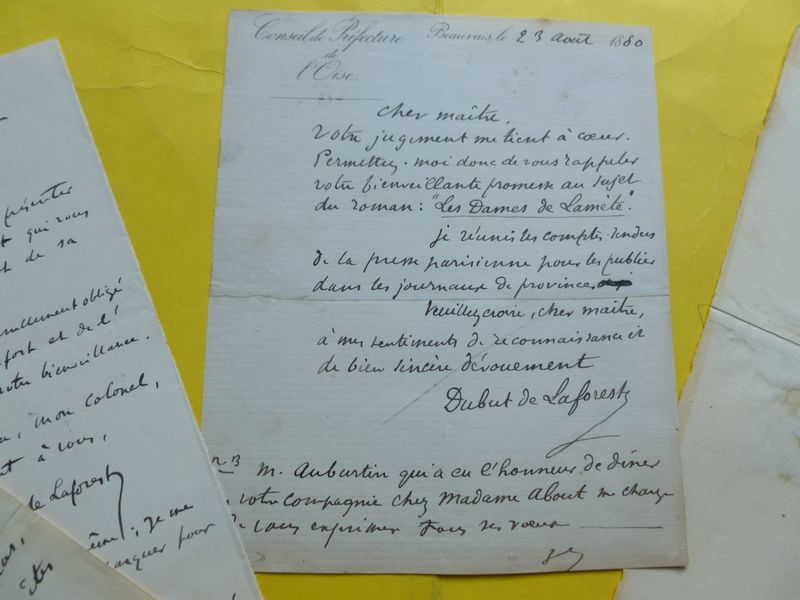 Conseil de Préfecture
de
l'Oise.
Beauvais, le 23 août 1880
cher maître,
Votre jugement me tient à cœur.
Permettez-moi donc de vous rappeler
votre bienveillante promesse au sujet
du roman: "Les Dames de Lamète."
je réunis les comptes-rendus
de la presse parisienne pour les publier
dans les journaux de province
Veuillez croire, cher maître,
à mes sentiments de reconnaissance et
de bien sincère dévouement
Dubut de Laforest
n B
M. Auburtin qui a eu l'honneur de dîner
votre compagnie chez Madame About me charge
de vous exprimer tous ses vœux
présenter
qui vous
t de sa
obligé.
fort et de l'
votre bienveillance.
mon colonel,
t à vous,
de Laforest
; je me
manquer pour